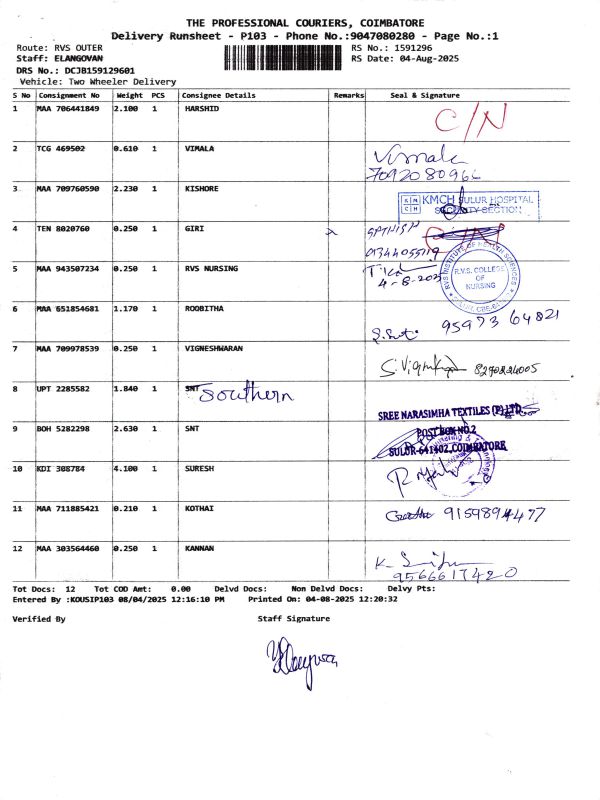 THE PROFESSIONAL COURIERS, COIMBATORE
Delivery Runsheet - P103 - Phone No.:9047080280 - Page No.:1
Route: RVS OUTER RS No.: 1591296
Staff: ELANGOVAN RS Date: 04-Aug-2025
DRS No.: DCJB159129601
Vehicle: Two Wheeler Delivery
S No Consignment No Weight PCS Consignee Details Remarks Seal & Signature
1 MAA 706441849 2.100 1 HARSHID C/N
2 TCG 469502 0.610 1 VIMALA Vimala
7092080966
3 MAA 709760590 2.230 1 KISHORE KMCH SULUR HOSPITAL
SECURITY SECTION
4 TEN 8020760 0.250 1 GIRI
5 MAA 943507234 0.250 1 RVS NURSING
4-8-2025
RVS INSTITUTE OF HEALTH SCIENCES
R.V.S. COLLEGE
OF
NURSING
6 MAA 651854681 1.170 1 ROOBITHA 95973 64821
7 MAA 709978539 0.250 1 VIGNESHWARAN
8 UPT 2285582 1.840 1 SNT Southern
SREE NARASIMHA TEXTILES (P) LTD
POST BOX NO.2
SULUR-641402, COIMBATORE
9 BOH 5282298 2.630 1 SNT
10 KDI 308784 4.100 1 SURESH
11 MAA 711885421 0.210 1 KOTHAI 9159894477
12 MAA 303564460 0.250 1 KANNAN
9566617420
Tot Docs: 12 Tot COD Amt: 0.00 Delvd Docs: Non Delvd Docs: Delvy Pts:
Entered By :KOUSIP103 08/04/2025 12:16:10 PM Printed On: 04-08-2025 12:20:32
Verified By Staff Signature